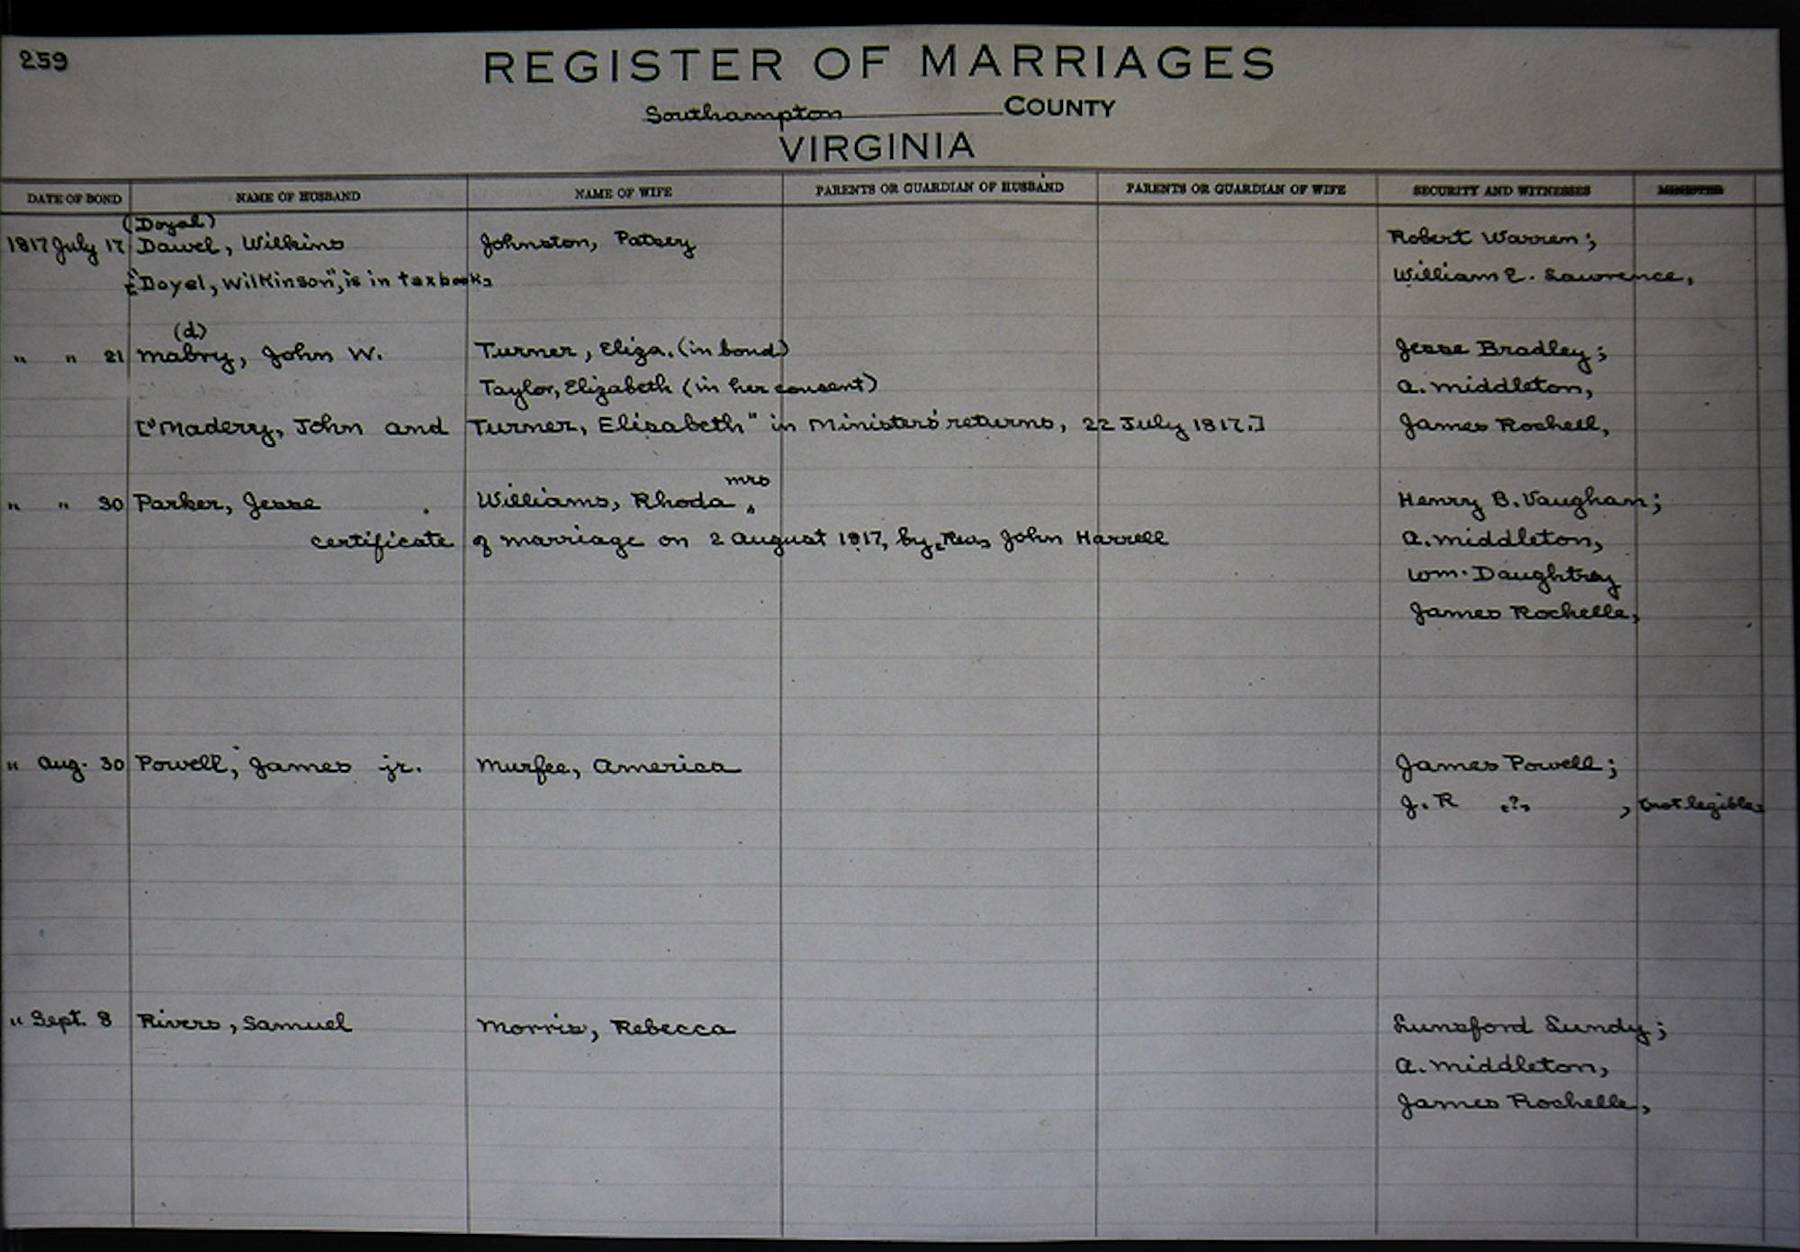 259
REGISTER OF MARRIAGES
Southampton COUNTY
VIRGINIA
DATE OF BOND NAME OF HUSBAND NAME OF WIFE PARENTS OR GUARDIAN OF HUSBAND PARENTS OR GUARDIAN OF WIFE SECURITY AND WITNESSES MINISTER
(Doyal)
1817 July 17 Dawel, Wilkins Johnston, Patsey Robert Warren;
["Doyel, Wilkinson", is in taxbooks William E. Lawrence,
(d)
" " 21 Mabry, John W. Turner, Eliza. (in bond) Jesse Bradley;
Taylor, Elizabeth (in her consent) A. Middleton,
["Maderry, John and Turner, Elisabeth" in Ministers' returns, 22 July 1817.] James Rochell,
mrs
" " 30 Parker, Jesse Williams, Rhoda ^ Henry B. Vaughan;
certificate of marriage on 2 August 1817, by [Rev] John Harrell A. Middleton,
Wm. Daughtrey
James Rochelle,
" Aug. 30 Powell, James jr. Murfee, America James Powell;
J. R [?] , [not legible]
" Sept. 8 Rivers, Samuel Morris, Rebecca Lunsford Lundy;
A. Middleton,
James Rochelle,